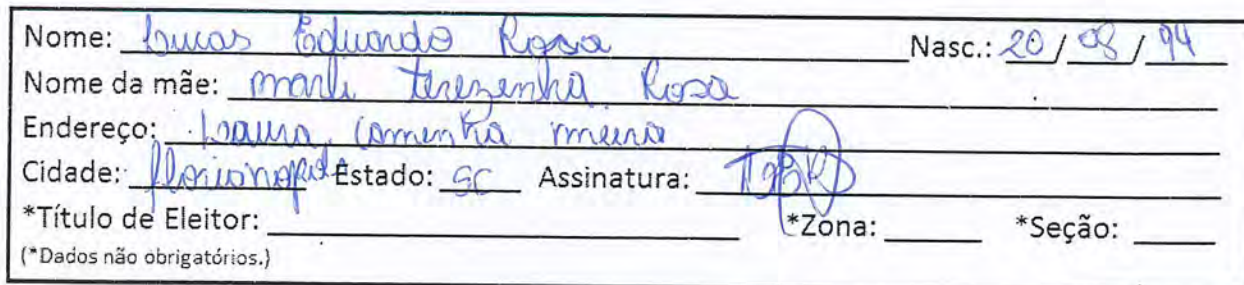 Nome: Lucas Eduardo Rosa Nasc.: 20 / 08 / 94
Nome da mãe: marli terezenha Rosa
Endereço: Laura caminha meira
Cidade: florianopolis Estado: SC Assinatura:
*Título de Eleitor: *Zona: *Seção:
(*Dados não obrigatórios.)